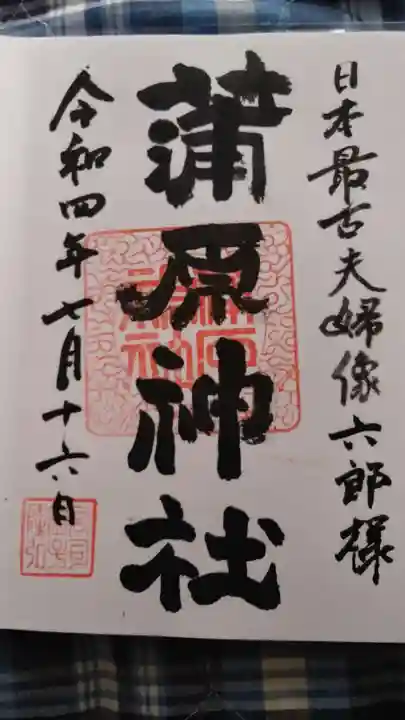 日本最古夫婦像六郎様
蒲原神社
令和四年七月十六日